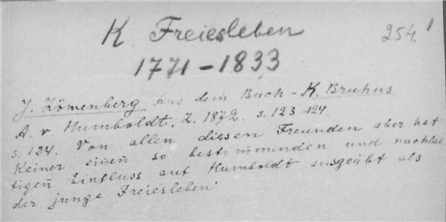 K. Freiesleben
254
1771-1833
J. Zömenberg aus dem Buch - K. Bruhns
A. v. Humboldt, L. 1872. S. 123-124.
S. 124. Von allen diesen Freunden aber hat
Keiner einen so bestimmenden und nachhal
tigen Einfluss auf Humboldt ausgeübt als
der junge Freiesleben